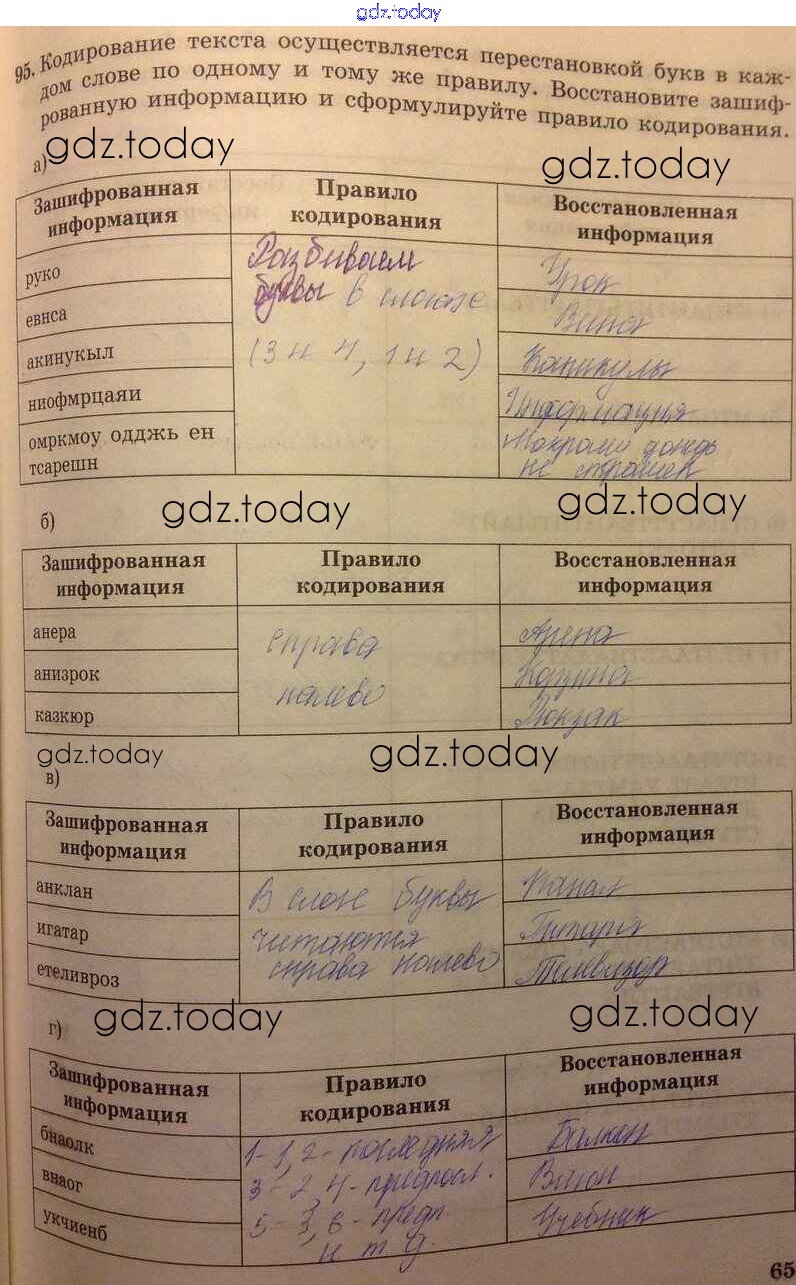 gdz.today
95. Кодирование текста осуществляется перестановкой букв в каж-
дом слове по одному и тому же правилу. Восстановите зашиф-
рованную информацию и сформулируйте правило кодирования.
gdz.today
gdz.today
а)
Зашифрованная информация
Правило кодирования
Восстановленная информация
руко
Разбиваем
Урок
евнса
буквы в слоге
акинукыл
(3 и 4, 1 и 2)
Каникулы
ниофмрцаяи
Информация
омркмоу одджь ен
Мокрому дождь
тсарешн
не страшен
gdz.today
gdz.today
б)
Зашифрованная информация
Правило кодирования
Восстановленная информация
анера
справа
Арена
анизрок
налево
Корзина
казкюр
Рюкзак
gdz.today
gdz.today
в)
Зашифрованная информация
Правило кодирования
Восстановленная информация
анклан
В слоге буквы
Канал
игатар
читаются
Гитара
етеливроз
справа налево
Телевизор
gdz.today
gdz.today
г)
Зашифрованная информация
Правило кодирования
Восстановленная информация
бнаолк
1-1, 2-последняя
Балкон
внаог
3-2, 4-предпосл.
укчиенб
5-3, 6-предп
Учебник
и т д.
65